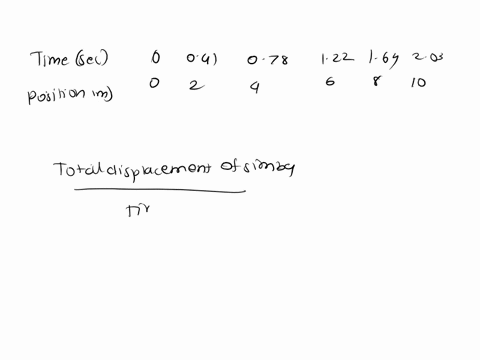 Time (sec) 0 0.41 0.78 1.22 1.64 2.03
position (m) 0 2 4 6 8 10
Total displacement of